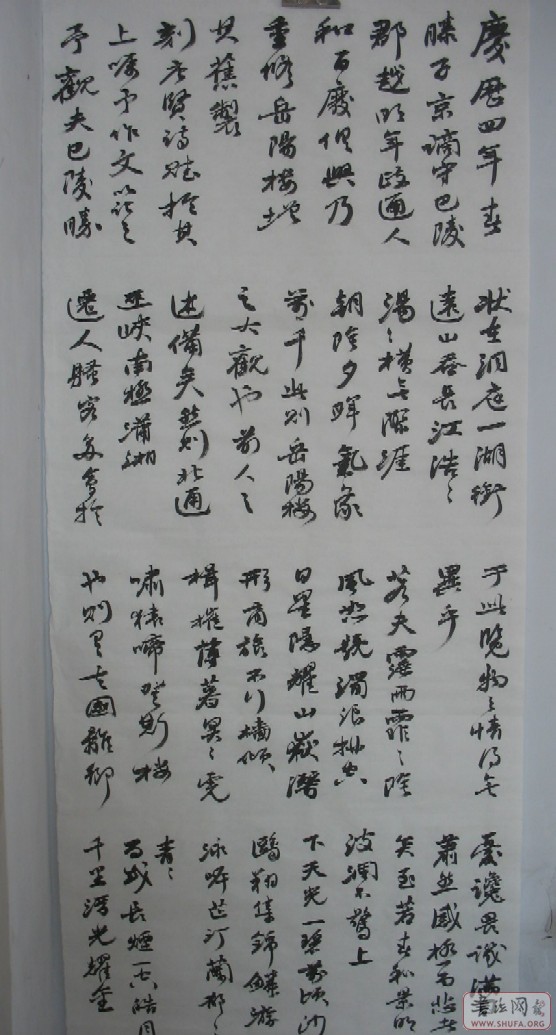 慶歷四年春
滕子京謫守巴陵
郡越明年政通人
和百廢俱興乃
重修岳陽樓增
其舊製
刻唐賢詩賦於其
上囑予作文以記之
予觀夫巴陵勝
狀在洞庭一湖銜
遠山吞長江浩々
湯々橫無際涯
朝陰夕暉氣象
萬千此則岳陽樓
之大觀也前人之
述備矣然則北通
巫峽南極瀟湘
遷人騷客多會於
于此覽物之情得無
異乎
若夫霪雨霏々陰
風怒號濁浪排空
日星隱耀山嶽潛
形商旅不行檣傾
楫摧薄暮冥々虎
嘯猿啼登斯樓
也則有去國懷鄉
憂讒畏譏滿
蕭然感極而悲者
矣至若春和景明
波瀾不驚上
下天光一碧萬頃沙
鷗翔集錦鱗游
泳岸芷汀蘭郁々
青々
而或長煙一空皓月
千里浮光耀金
書法网
WWW.SHUFA.ORG